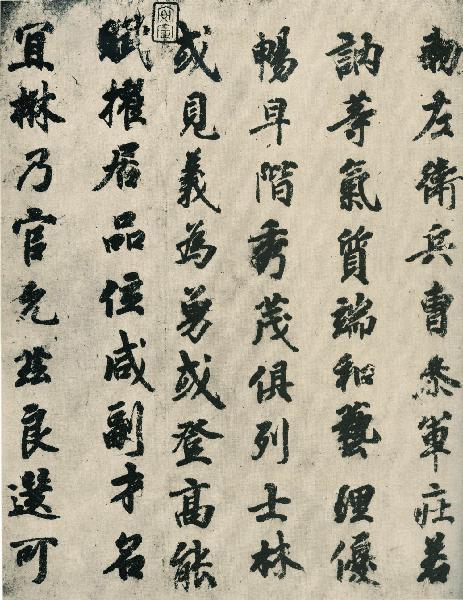 勅左衛兵曹叅軍庄若
訥等氣質端和藝理優
暢早階秀茂俱列士林
或見義為勇或登高能
賦擢居品位咸副才名
冝楙乃官允茲良選可